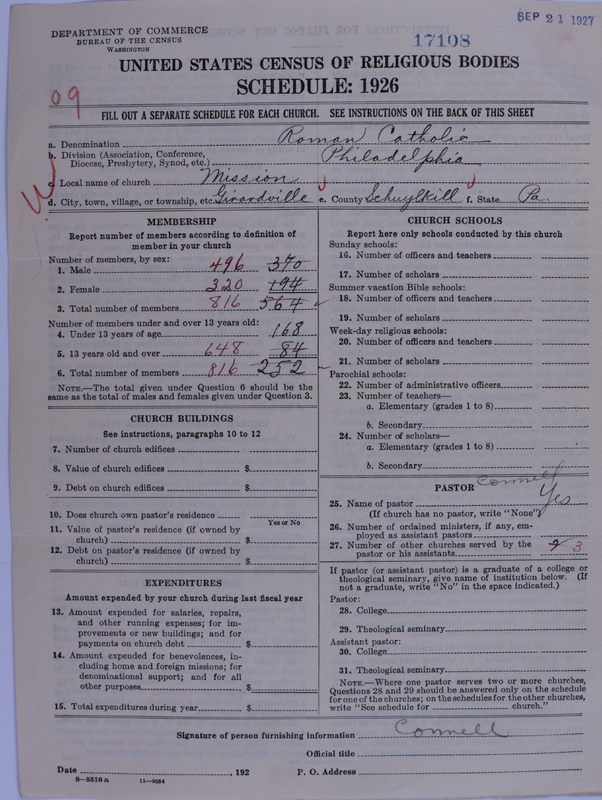 SEP 21 1927
DEPARTMENT OF COMMERCE
BUREAU OF THE CENSUS
WASHINGTON
17198
UNITED STATES CENSUS OF RELIGIOUS BODIES
SCHEDULE: 1926
09
FILL OUT A SEPARATE SCHEDULE FOR EACH CHURCH. SEE INSTRUCTIONS ON THE BACK OF THIS SHEET
a. Denomination Roman Catholic
b. Division (Association, Conference, Diocese, Presbytery, Synod, etc.) Philadelphia
c. Local name of church Mission
d. City, town, village, or township, etc. Girardville e. County Schuylkill f. State Pa.
MEMBERSHIP
Report number of members according to definition of
member in your church
Number of members, by sex:
1. Male 496 370
2. Female 320 194
3. Total number of members 816 564
Number of members under and over 13 years old:
4. Under 13 years of age 168
5. 13 years old and over 648 84
6. Total number of members 816 252
NOTE.—The total given under Question 6 should be
same as the total of males and females given under Question 3.
CHURCH BUILDINGS
See instructions, paragraphs 10 to 12
7. Number of church edifices
8. Value of church edifices $
9. Debt on church edifices $
10. Does church own pastor's residence
Yes or No
11. Value of pastor's residence (if owned by
church) $
12. Debt on pastor's residence (if owned by
church) $
EXPENDITURES
Amount expended by your church during last fiscal year
13. Amount expended for salaries, repairs,
and other running expenses; for im-
provements or new buildings; and for
payments on church debt $
14. Amount expended for benevolences, in-
cluding home and foreign missions; for
denominational support; and for all
other purposes $
15. Total expenditures during year $
CHURCH SCHOOLS
Report here only schools conducted by this church
Sunday schools:
16. Number of officers and teachers
17. Number of scholars
Summer vacation Bible schools:
18. Number of officers and teachers
19. Number of scholars
Week-day religious schools:
20. Number of officers and teachers
21. Number of scholars
Parochial schools:
22. Number of administrative officers
23. Number of teachers—
a. Elementary (grades 1 to 8)
b. Secondary
24. Number of scholars—
a. Elementary (grades 1 to 8)
b. Secondary
PASTOR Connell
25. Name of pastor Yes
(If church has no pastor, write "None")
26. Number of ordained ministers, if any, em-
ployed as assistant pastors
27. Number of other churches served by the
pastor or his assistants 3
If pastor (or assistant pastor) is a graduate of a college or
theological seminary, give name of institution below. (If
not a graduate, write "No" in the space indicated.)
Pastor:
28. College
29. Theological seminary
Assistant pastor:
30. College
31. Theological seminary
NOTE.—Where one pastor serves two or more churches,
Questions 28 and 29 should be answered only on the schedule
for one of the churches; on the schedules for the other churches,
write "See schedule for church."
Signature of person furnishing information Connell
Official title
Date , 192 P. O. Address
8-5518 a 11-9054